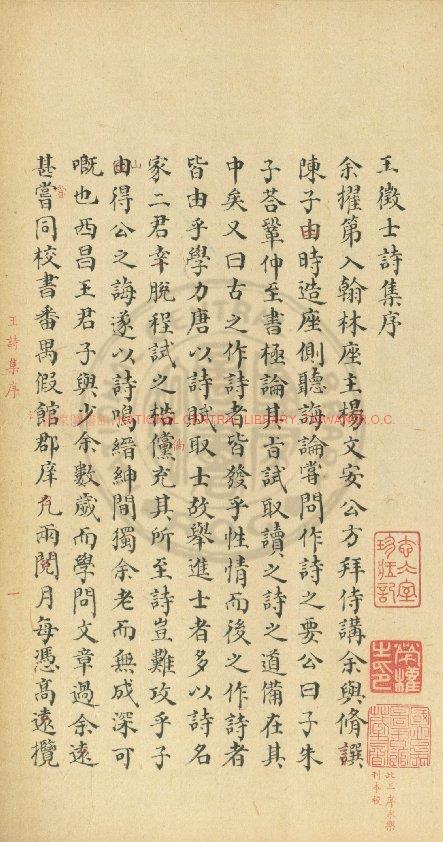 王徵士詩集序
余擢第入翰林座主楊文安公方拜侍講余與脩譔
陳子由時造座側聽誨論嘗問作詩之要公曰子朱
子荅鞏仲至書極論其旨試取讀之詩之道備在其
中矣又曰古之作詩者皆發乎性情而後之作詩者
皆由乎學力唐以詩賦取士故舉進士者多以詩名
家二君幸脫程試之 儻充其所至詩豈難攻乎子
由得公之誨遂以詩鳴縉紳間獨余老而無成深可
嘅也西昌王君子與少余數歲而學問文章過余遠
甚嘗同校書番禺假館郡庠凡兩閱月每憑高遠攬
王詩集序 一
NATIONAL CENTRAL LIBRARY, TAIWAN R.O.C
此三序永樂
刊本被